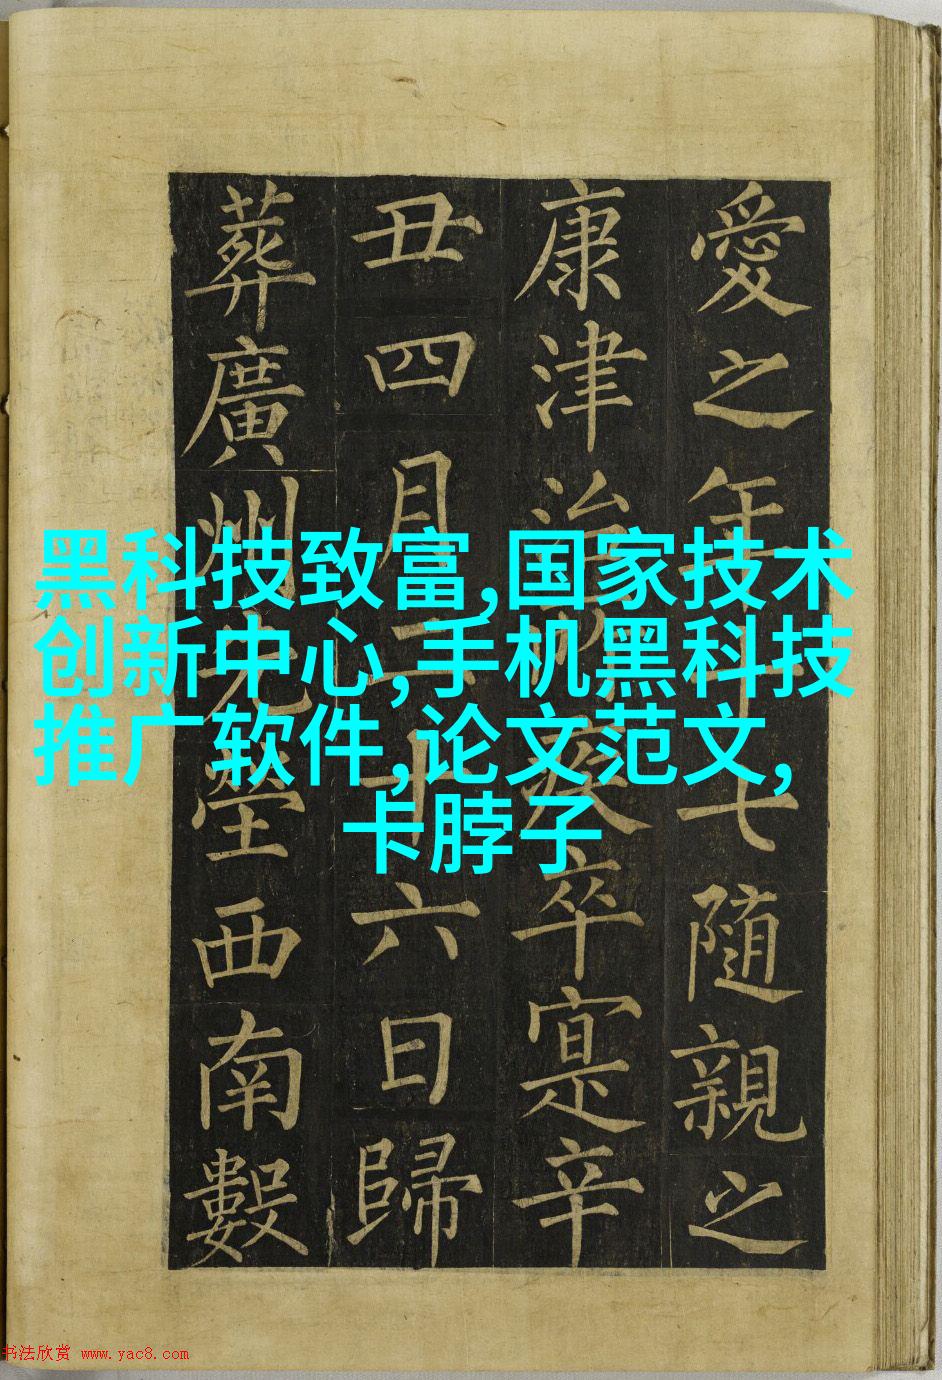 愛之年十七隨親之
康津治癸卒寔辛
丑四月二十六日歸
葬廣州先塋西南數
黑科技致富,国家技术
创新中心,手机黑科技
推广软件,论文范文,
卡脖子
书法欣赏 www.yac8.com